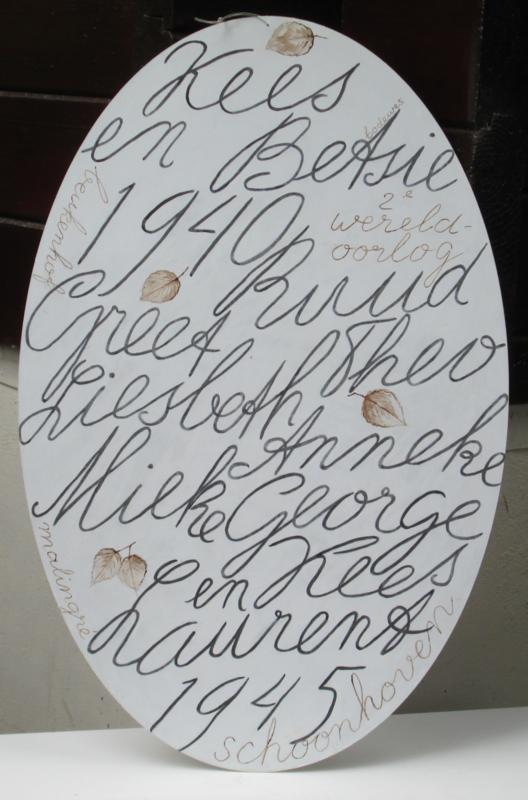 Kees
en Betsie
bodewes
beukenhof
1940
2e
wereld-
oorlog
Ruud
Greet
Theo
Liesbeth
Anneke
Mieke
George
Kees
en
Laurens
malingré
1945
schoonhoven